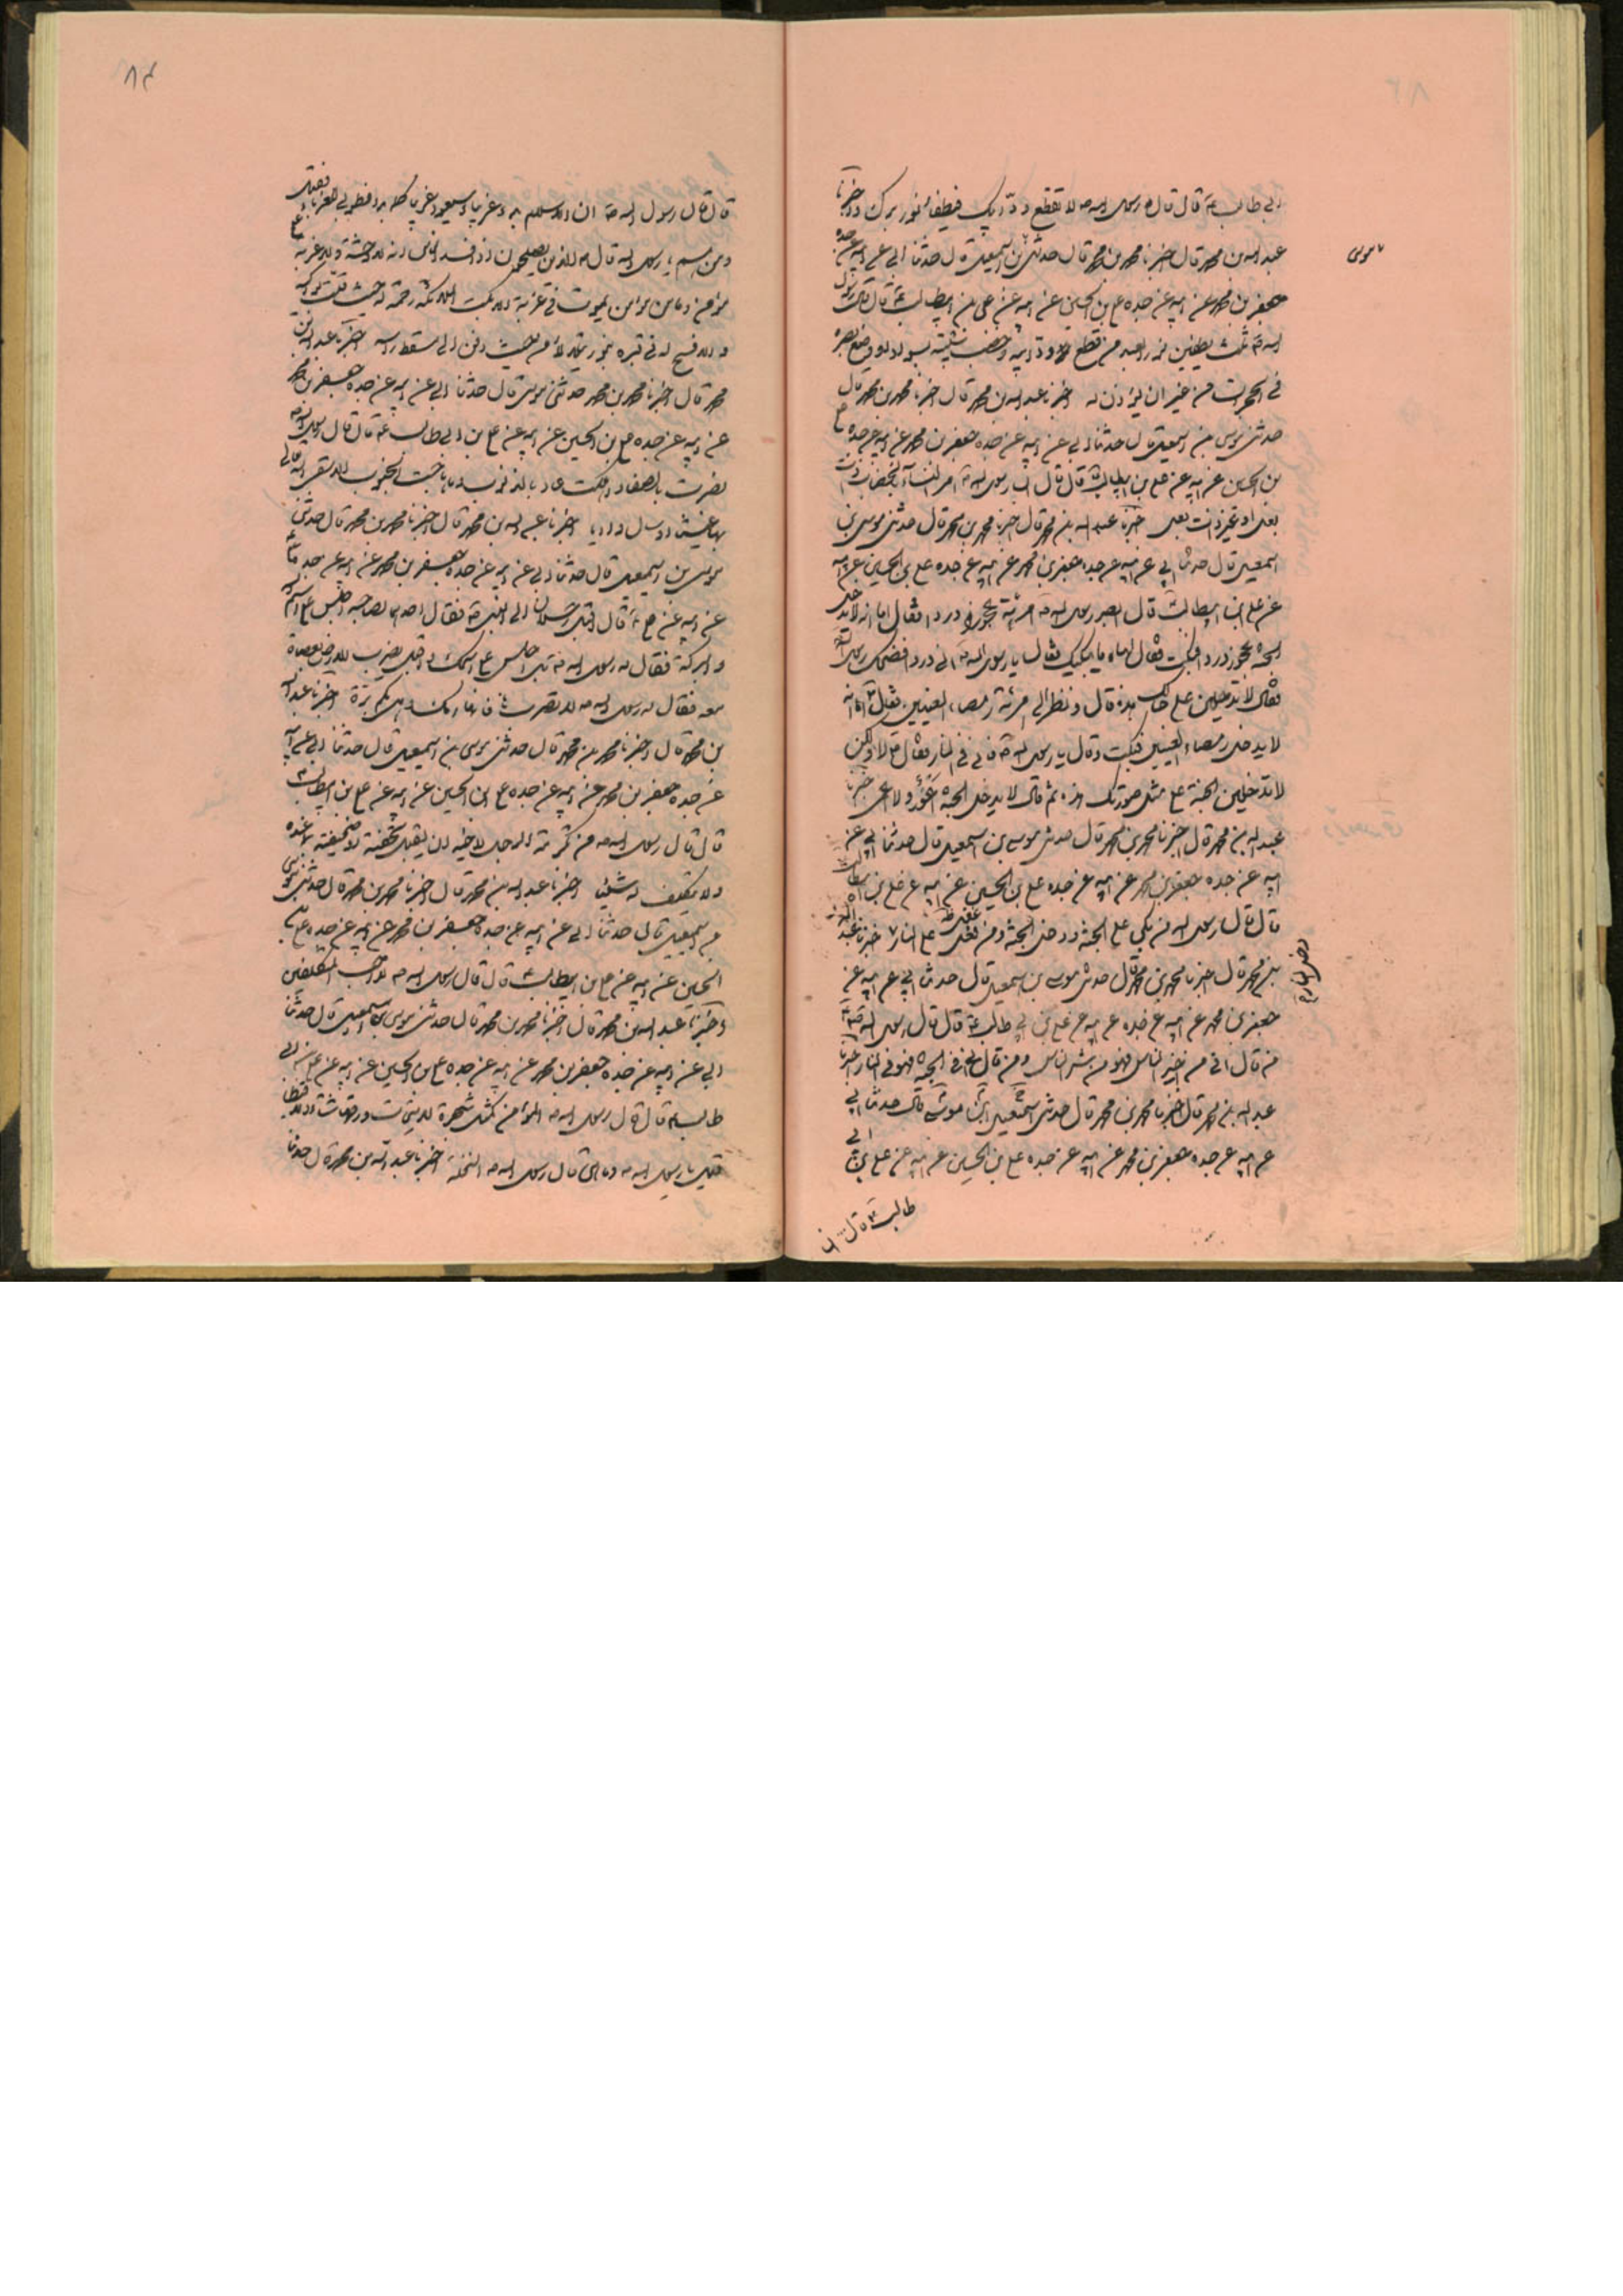 ابي طالب ع قال قال رسول الله ص لا تقطع ودّ ابيك فيطفأ نورك واخبرنا
عبد الله بن محمد قال اخبرنا محمد بن محمد قال حدثني بن اسمعيل قال حدثنا ابي عن ابيه عن جده
موسى
جعفر بن محمد عن ابيه عن جده علي بن الحسين عن ابيه عن علي بن ابيطالب ع قال قال رسول
الله ص ثلث يطفين نور العبد من قطع اوداء ابيه وخضب شيبته بسواد ووضع بصره
في الحجرات من غير ان يؤذن له اخبرنا عبد الله بن محمد قال اخبرنا محمد بن محمد قال
حدثني موسى بن اسمعيل قال حدثنا ابي عن ابيه عن جده جعفر بن محمد عن ابيه عن جده علي
بن الحسين عن ابيه عن علي بن ابيطالب ع قال قال رسول الله ص امر النساء بالخضاب ذات
بعل او غير ذات بعل اخبرنا عبد الله بن محمد قال اخبرنا محمد بن محمد قال حدثني موسى بن
اسمعيل قال حدثنا ابي عن ابيه عن جده جعفر بن محمد عن ابيه عن جده علي بن الحسين عن ابيه
عن علي بن ابيطالب قال ابصر رسول الله ص امرئة عجوزا درداء فقال اما انه لا يدخل
الجنة عجوز درداء فبكت فقال لها ما يبكيك فقالت يا رسول الله ص اني درداء فضحك رسول الله
فقال لا تدخلين على حالك هذه قال ونظر الى امرئة رمصاء العينين فقال اما انه
لا يدخل رمصاء العينين فبكت وقالت يا رسول الله ص فاني في النار فقال لا ولكن
لا تدخلين الجنة على مثل صورتك هذه ثم قال لا يدخل الجنة اعور ولا اعمى اخبرنا
عبد الله بن محمد قال اخبرنا محمد بن محمد قال حدثني موسى بن اسمعيل قال حدثنا ابي عن
ابيه عن جده جعفر بن محمد عن ابيه عن جده علي بن الحسين عن ابيه عن علي بن ابيطالب
قال قال رسول الله من بكى على الجنة دخل الجنة ومن على النار اخبرنا عبد
دخل النار
بن محمد قال اخبرنا محمد بن محمد قال حدثني موسى بن اسمعيل قال حدثنا ابي عن ابيه عن
جعفر بن محمد عن ابيه عن جده عن ابيه عن علي بن ابي طالب ع قال قال رسول الله ص
من قال اني من خير الناس فهو من شر الناس ومن قال اني في الجنة فهو في النار اخبرنا
عبد الله بن محمد قال اخبرنا محمد بن محمد قال حدثني اسمعيل ابن موسى قال حدثنا ابي
عن ابيه عن جده جعفر بن محمد عن ابيه عن جده علي بن الحسين عن ابيه عن علي بن ابي
طالب ع قال
٨٤
قال قال رسول الله ص ان الاسلام بدء غريبا وسيعود غريبا كما بدء فطوبى للغرباء فقيل
ومن هم يا رسول الله قال الذين يصلحون اذا فسد الناس انه لا وحشة ولا غربة على
مؤمن وما من مؤمن يموت في غربة الا بكت الملائكة رحمة له حيث قلت بواكيه
والا فسح له في قبره بنور يتلألأ من حيث دفن الى مسقط راسه اخبرنا عبد الله بن
محمد قال اخبرنا محمد بن محمد حدثني موسى قال حدثنا ابي عن ابيه عن جده جعفر بن محمد
عن ابيه عن جده علي بن الحسين عن ابيه عن علي بن ابي طالب ع قال قال رسول الله ص
نصرت بالصبا واهلكت عاد بالدبور وما هاجت الجنوب الا سقى الله تعالى
بها غيثا واسال واديا اخبرنا عبد الله بن محمد قال اخبرنا محمد بن محمد قال حدثني
موسى بن اسمعيل قال حدثنا ابي عن ابيه عن جده جعفر بن محمد عن ابيه عن جده علي
عن ابيه عن علي ع قال اقبل رجلان الى النبي ص فقال احدهما لصاحبه اجلس على اسم الله
والبركة فقال له رسول الله ص اجلس على استك فاقبل يضرب الارض بعصاة
معه فقال له رسول الله ص لا تضربها فانها امكم وهي بكم برة اخبرنا عبد الله
بن محمد قال اخبرنا محمد بن محمد قال حدثني موسى بن اسمعيل قال حدثنا ابي عن ابيه
عن جده جعفر بن محمد عن ابيه عن جده علي ابن الحسين عن ابيه عن علي بن ابيطالب ع
قال قال رسول الله ص من تكرمة الرجل لاخيه ان يقبل تحفته او يتحفه بما عنده
ولا يتكلف له شيئا اخبرنا عبد الله بن محمد قال اخبرنا محمد بن محمد قال حدثني موسى
بن اسمعيل قال حدثنا ابي عن ابيه عن جده جعفر بن محمد عن ابيه عن جده علي بن
الحسين عن ابيه عن علي بن ابيطالب ع قال قال رسول الله ص لا احب المتكلفين
واخبرنا عبد الله بن محمد قال اخبرنا محمد بن محمد قال حدثني موسى بن اسمعيل قال حدثنا
ابي عن ابيه عن جده جعفر بن محمد عن ابيه عن جده علي بن الحسين عن ابيه عن علي بن ابي
طالب ع قال قال رسول الله ص المؤمن كمثل شجرة لا يتحات ورقها شتاء ولا قيظا
قيل يا رسول الله ص وما هي قال رسول الله ص النخلة اخبرنا عبد الله بن محمد قال حدثنا